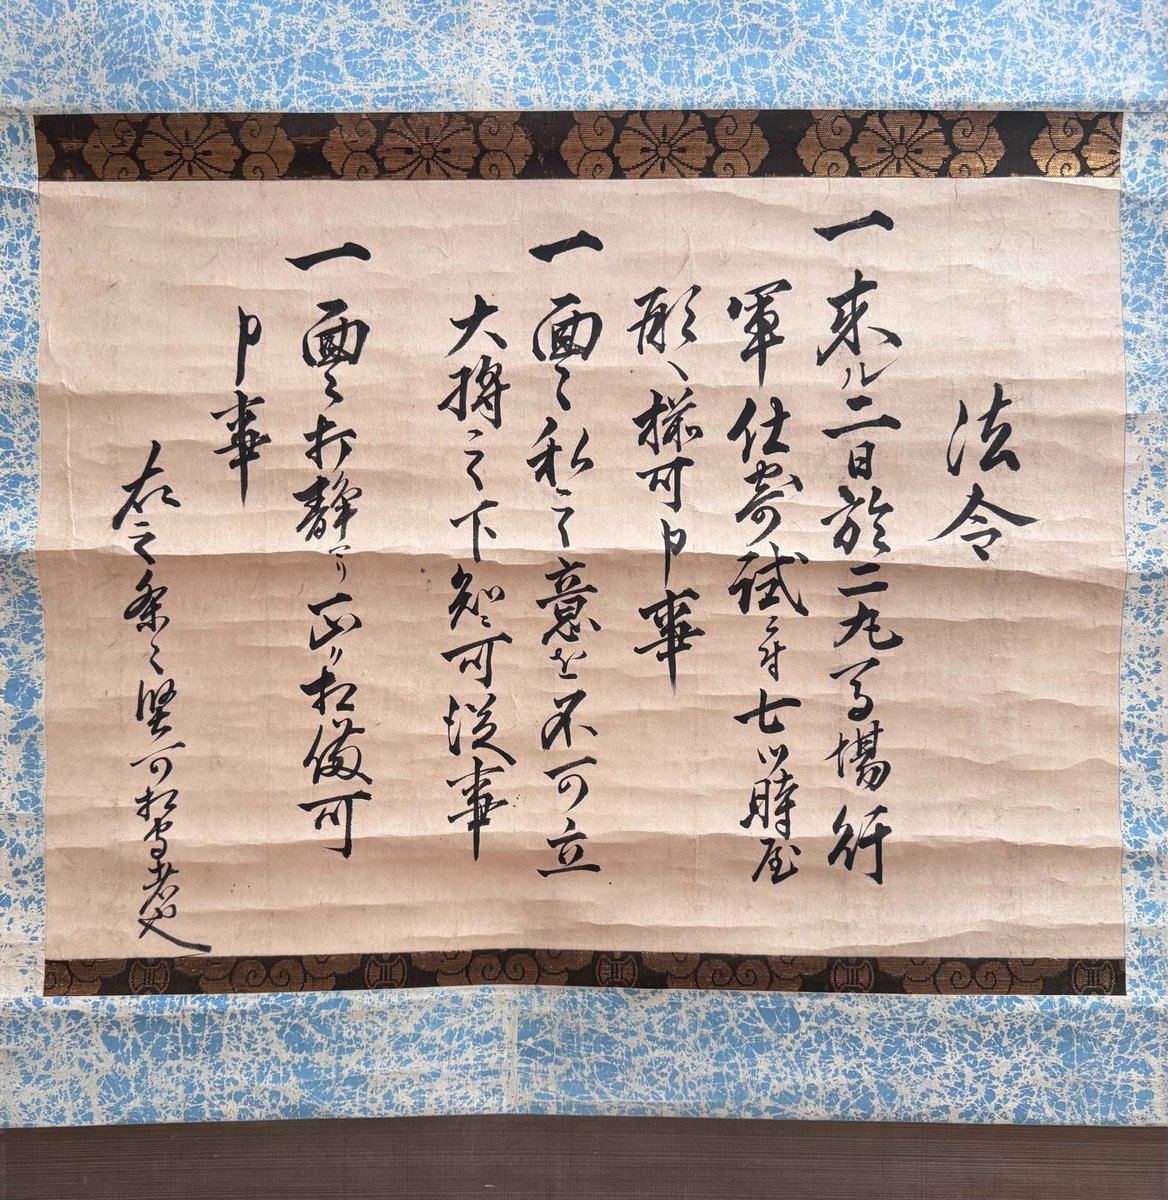 法令
一来ル二日於二丸馬場行
軍仕寄試ニ付七ツ時屋
形へ揃可申事
一面々私之意を不可立
大将之下知ニ可従事
一面々打静マリ正ク相備可
申事
右之条々堅可相守者也